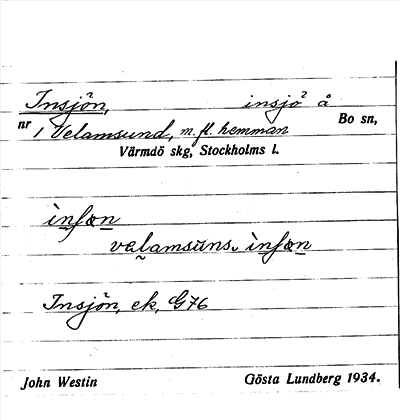 Insjön, insjö å
nr 1 Velamsund, m. fl. hemman Bo sn,
Värmdö skg, Stockholms l.
Insjön, ek, G76
John Westin Gösta Lundberg 1934.